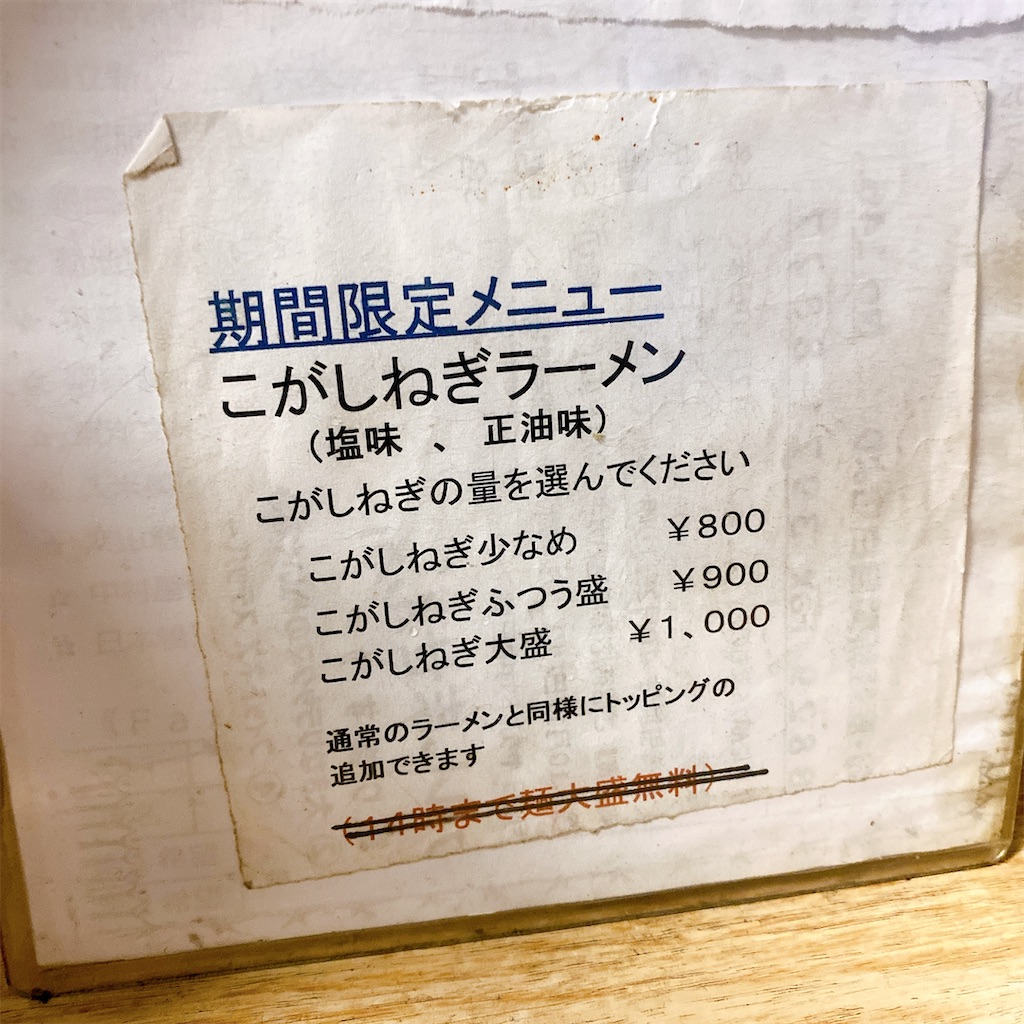 期間限定メニュー
こがしねぎラーメン
（塩味　、　正油味）
こがしねぎの量を選んでください
こがしねぎ少なめ　￥８００
こがしねぎふつう盛　￥９００
こがしねぎ大盛　￥１、０００
通常のラーメンと同様にトッピングの
追加できます
（１４時まで麺大盛無料）